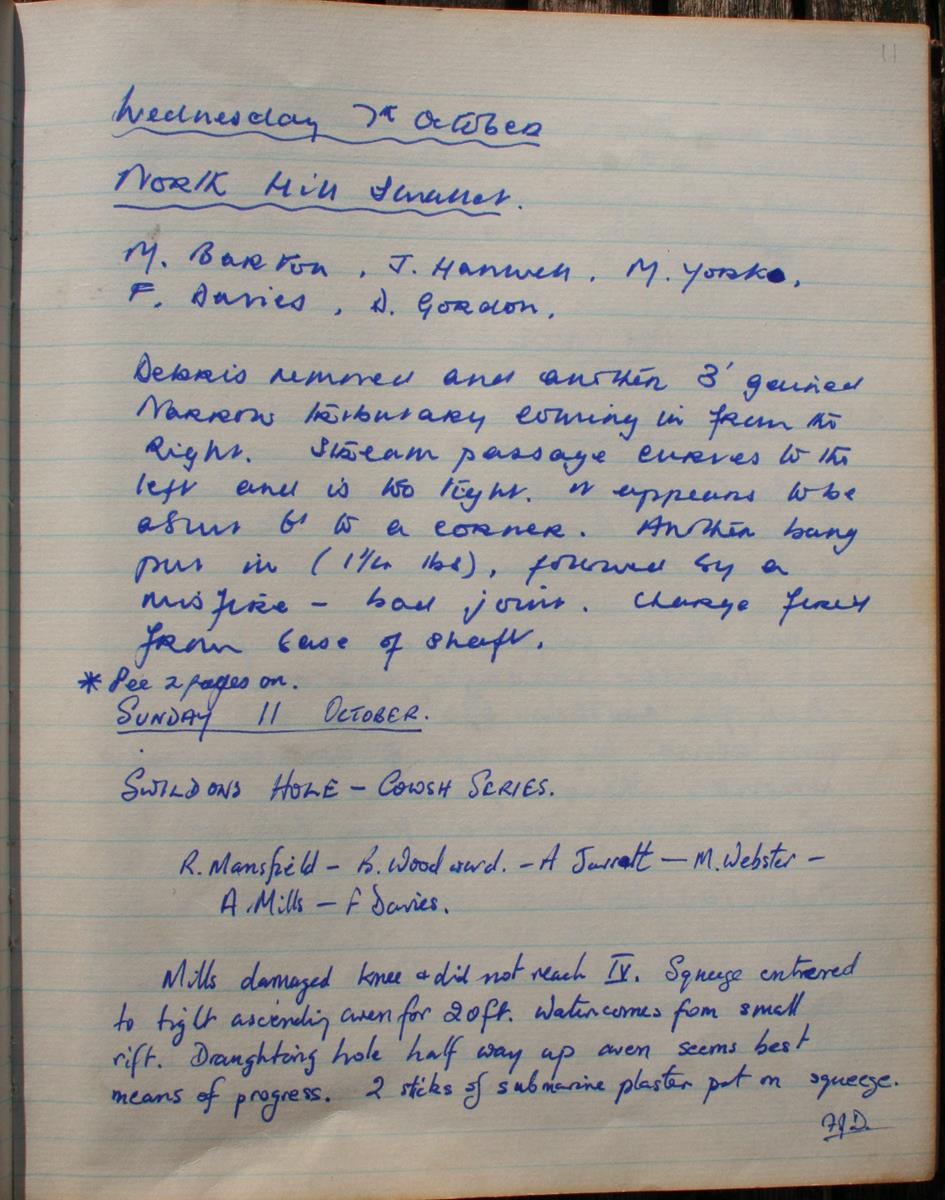 11
Wednesday 7th October
North Hill Swallet.
M. Barton, J. Hanwell, M. York,
F. Davies, D. Gordon.
Debris removed and another 3' gained
Narrow tributary coming in from the
Right. Stream passage curves to the
left and is too tight. It appears to be
about 6' to a corner. Another bang
put in (1 1/4 lbs), followed by a
misfire – bad joint. Charge fired
from base of shaft.
* See 2 pages on.
SUNDAY 11 OCTOBER.
SWILDONS HOLE – COWSH SERIES.
R. Mansfield – B. Woodward. – A Jarratt — M. Webster –
A. Mills – F Davies.
Mills damaged knee & did not reach IV. Squeeze entered
to tight ascending aven for 20ft. Water comes from small
rift. Draughting hole half way up aven seems best
means of progress. 2 sticks of submarine plaster put on squeeze.
FJD.